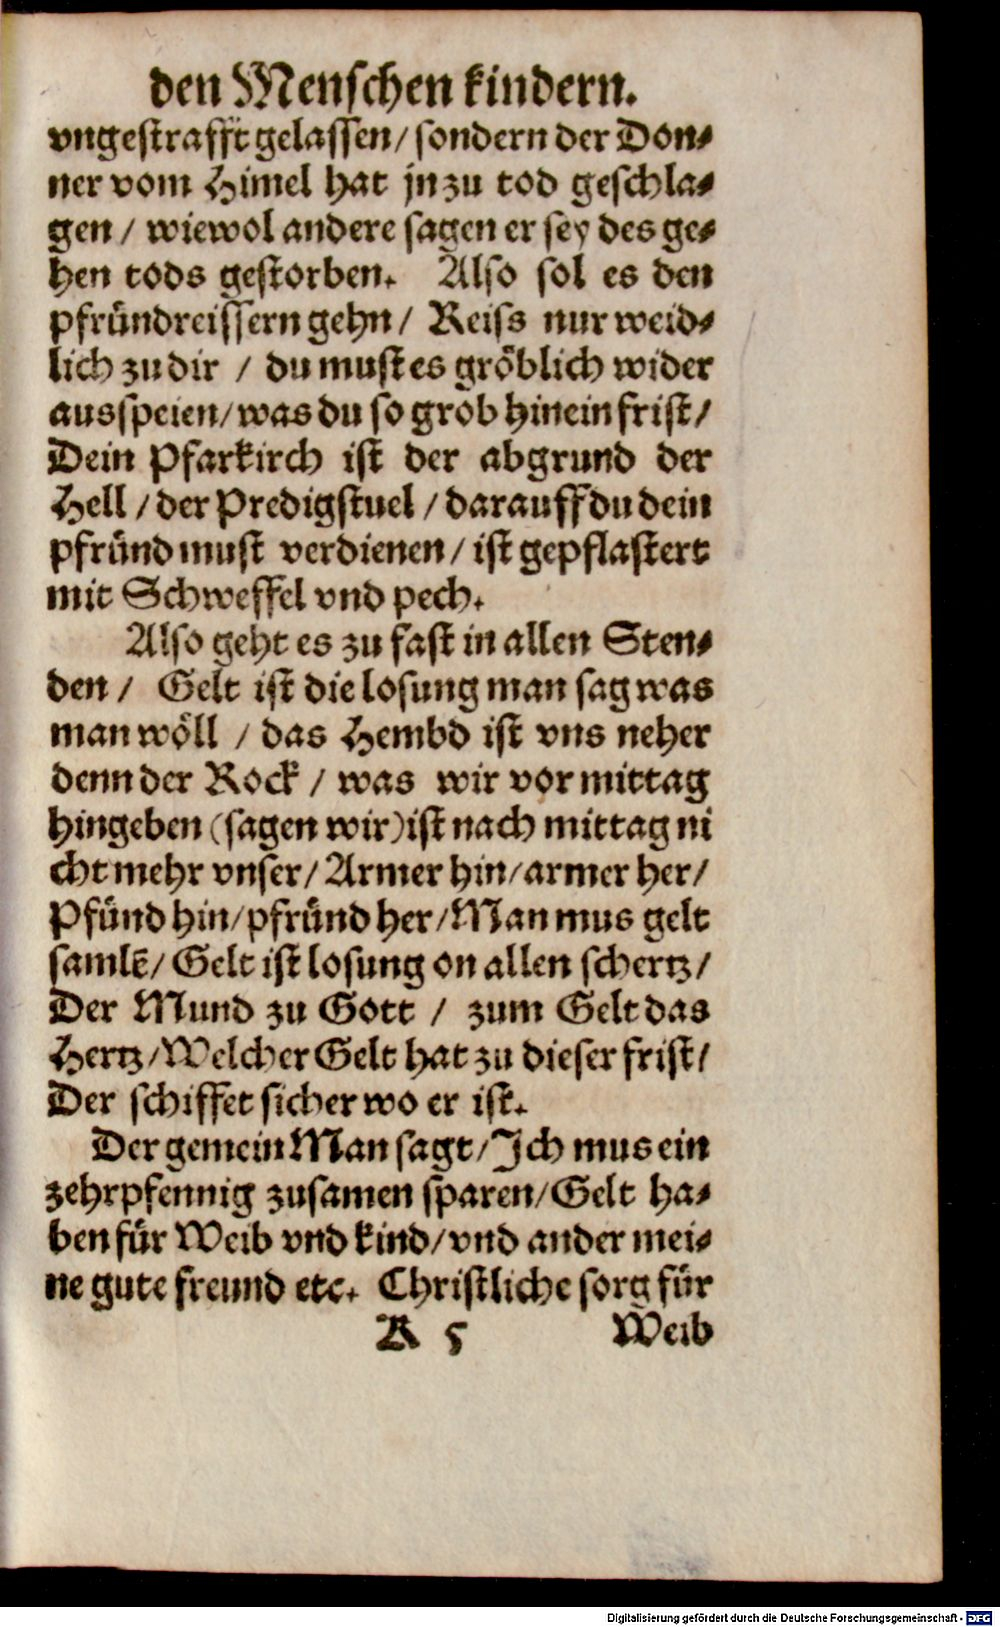 den Menschen kindern.
vngestrafft gelassen/ sondern der Don⸗
ner vom Himel hat jn zu tod geschla⸗
gen / wiewol andere sagen er sey des ge⸗
hen tods gestorben. Also sol es den
pfründreissern gehn/ Reiss nur weid⸗
lich zu dir / du must es gröblich wider
ausspeien/ was du so grob hinein frist/
Dein Pfarkirch ist der abgrund der
Hell / der Predigstuel / darauff du dein
pfründ must verdienen / ist gepflastert
mit Schweffel vnd pech.
Also geht es zu fast in allen Sten⸗
den / Gelt ist die losung man sag was
man wöll / das Hembd ist vns neher
denn der Rock / was wir vor mittag
hingeben (sagen wir) ist nach mittag ni
cht mehr vnser/ Armer hin/ armer her/
Pfünd hin/ pfründ her/ Man mus gelt
samlē/ Gelt ist losung on allen schertz/
Der Mund zu Gott / zum Gelt das
Hertz/ Welcher Gelt hat zu dieser frist/
Der schiffet sicher wo er ist.
Der gemein Man sagt/ Ich mus ein
zehrpfennig zusamen sparen/ Gelt ha⸗
ben für Weib vnd kind/ vnd ander mei⸗
ne gute freund etc. Christliche sorg für
K 5 Weib
Digitalisierung gefördert durch die Deutsche Forschungsgemeinschaft - DFG